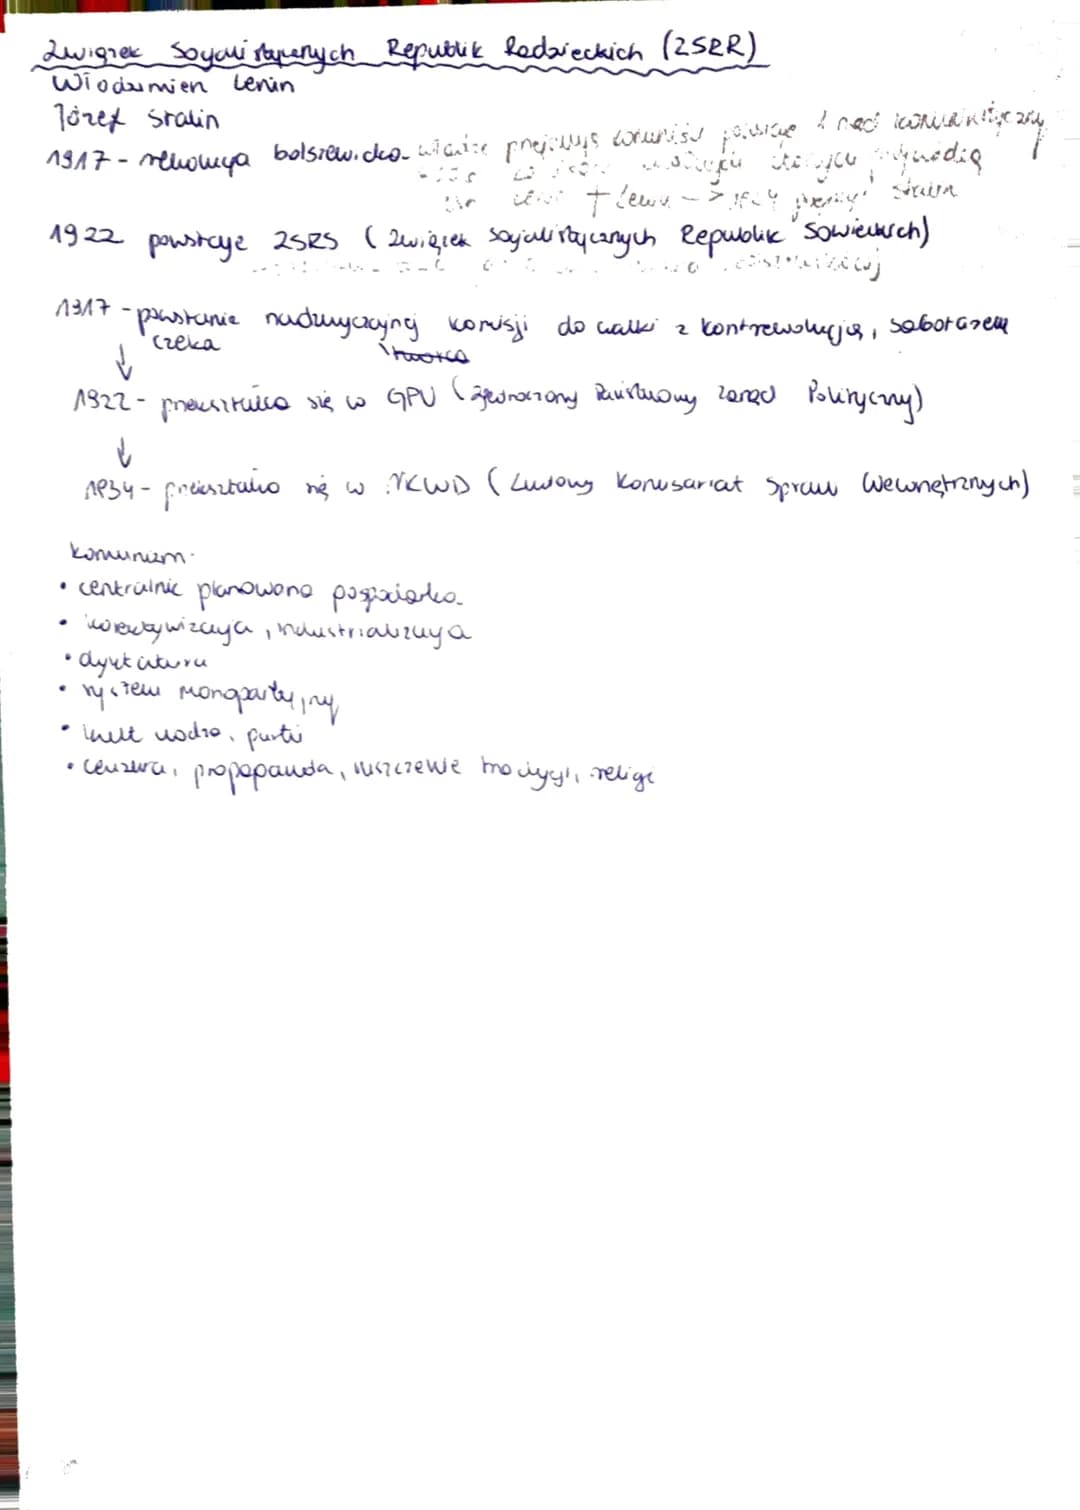 Związek Socjalistycznych Republik Radzieckich (ZSRR)
Włodzimierz Lenin
Józef Stalin
1917 - rewolucja bolszewicka - władzę przejmują komuniści powstaje 1 rząd komunistyczny
+ Lenin -> Stalin
1922 powstaje ZSRS (Związek Socjalistycznych Republik Sowieckich)
1917 - powstanie nadzwyczajnej komisji do walki z kontrrewolucją, sabotażem
czeka
↓
1922 - przekształca się w GPU (Zjednoczony Państwowy Zarząd Polityczny)
↓
1934 - przekształco się w NKWD (Ludowy Komisariat Spraw Wewnętrznych)
komunizm
• centralnie planowana gospodarka
• kolektywizacja, industrializacja
• dyktatura
• system monopartyjny
• kult wodza, partii
• cenzura, propaganda, niszczenie tradycji, religi